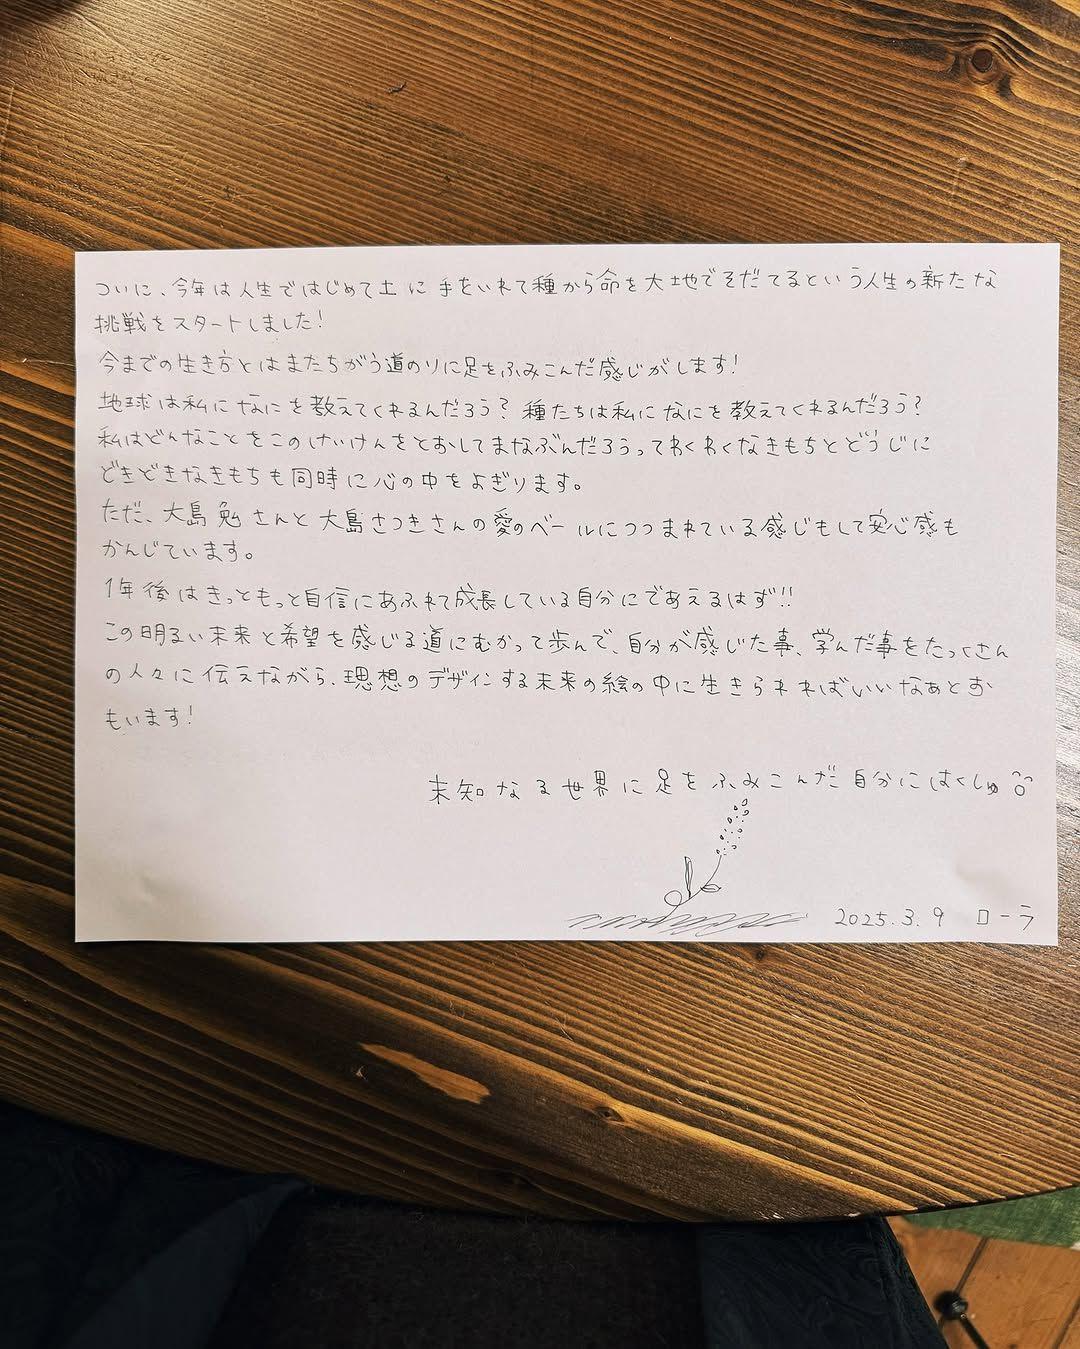 ついに、今年は人生ではじめて土に手をいれて種から命を大地でそだてるという人生の新たな
挑戦をスタートしました!
今までの生き方とはまたちがう道のりに足をふみこんだ感じがします!
地球は私になにを教えてくれるんだろう?種たちは私になにを教えてくれるんだろう?
私はどんなことをこのけいけんをとおしてまなぶんだろうってわくわくなきもちとどうじに
どきどきなきもちも同時に心の中をよぎります。
ただ、大島勉さんと大島さつきさんの愛のベールにつつまれている感じもして安心感も
かんじています。
1年後はきっともっと自信にあふれて成長している自分にであえるはず!!
この明るい未来と希望を感じる道にむかって歩んで、自分が感じた事、学んだ事をたっくさん
の人々に伝えながら、理想のデザインする未来の絵の中に生きられればいいなぁとお
もいます!
未知なる世界に足をふみこんだ自分にはくしゅ
2025.3.9 ローラ